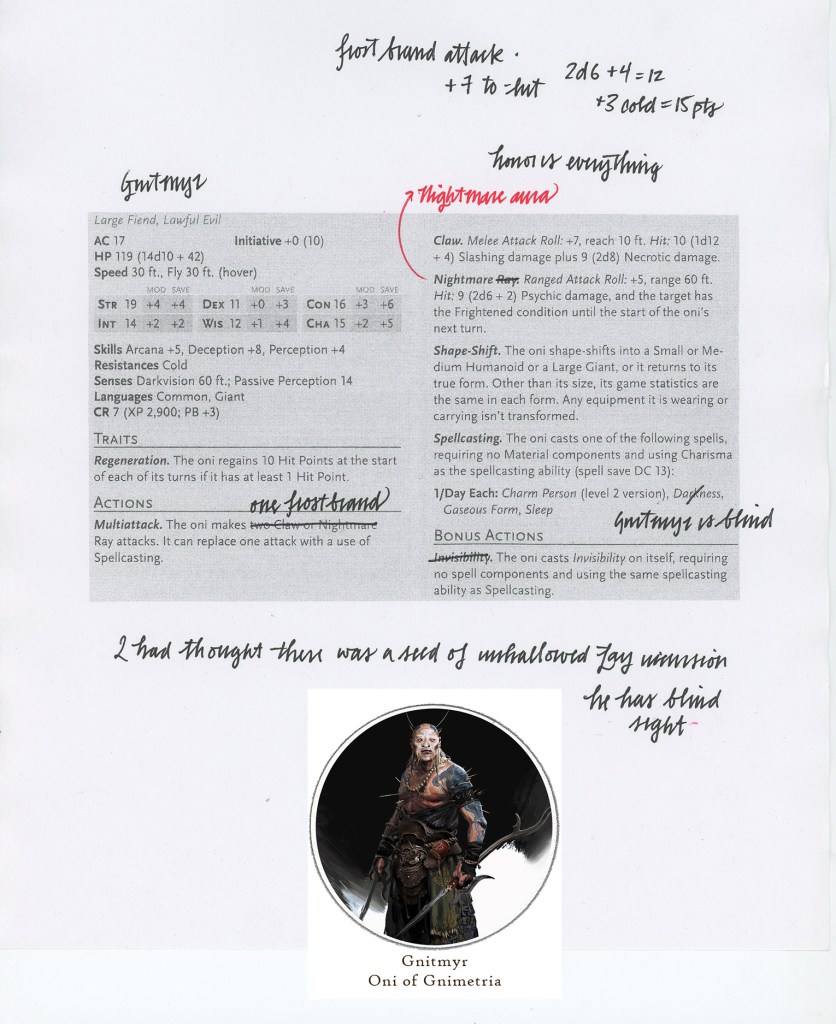 frost brand attack.
+7 to-hit
2d6 +4 = 12
+3 cold = 15 pts
honor is everything
Gnitmyr
Nightmare aura
Large Fiend, Lawful Evil
AC 17 Initiative +0 (10)
HP 119 (14d10 + 42)
Speed 30 ft., Fly 30 ft. (hover)
MOD SAVE MOD SAVE MOD SAVE
STR 19 +4 +4 DEX 11 +0 +3 CON 16 +3 +6
INT 14 +2 +2 WIS 12 +1 +4 CHA 15 +2 +5
Skills Arcana +5, Deception +8, Perception +4
Resistances Cold
Senses Darkvision 60 ft.; Passive Perception 14
Languages Common, Giant
CR 7 (XP 2,900; PB +3)
TRAITS
Regeneration. The oni regains 10 Hit Points at the start
of each of its turns if it has at least 1 Hit Point.
ACTIONS
one frostbrand
Multiattack. The oni makes two Claw or Nightmare
Ray attacks. It can replace one attack with a use of
Spellcasting.
Claw. Melee Attack Roll: +7, reach 10 ft. Hit: 10 (1d12
+ 4) Slashing damage plus 9 (2d8) Necrotic damage.
Nightmare Ray. Ranged Attack Roll: +5, range 60 ft.
Hit: 9 (2d6 + 2) Psychic damage, and the target has
the Frightened condition until the start of the oni's
next turn.
Shape-Shift. The oni shape-shifts into a Small or Me-
dium Humanoid or a Large Giant, or it returns to its
true form. Other than its size, its game statistics are
the same in each form. Any equipment it is wearing or
carrying isn't transformed.
Spellcasting. The oni casts one of the following spells,
requiring no Material components and using Charisma
as the spellcasting ability (spell save DC 13):
1/Day Each: Charm Person (level 2 version), Darkness,
Gaseous Form, Sleep
Gnitmyr is blind
BONUS ACTIONS
Invisibility. The oni casts Invisibility on itself, requiring
no spell components and using the same spellcasting
ability as Spellcasting.
I had thought there was a seed of unhallowed Fay incursion
he has blind
sight
Gnitmyr
Oni of Gnimetria